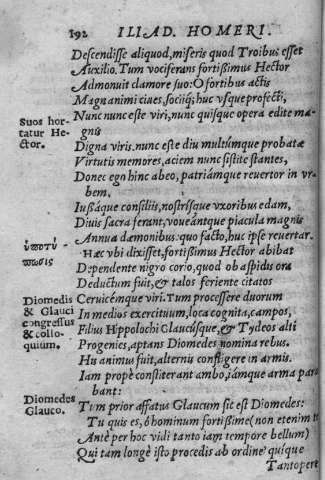 192 ILIAD. HOMERI.
Descendisse aliquod, miseris quod Troibus esset
Auxilio. Tum vociferans fortißimus Hector
Admonuit clamore suo: O fortibus actis
Magnanimi ciues, socijq; huc vsque profecti,
Suos hor-
tatur He-
ctor.
Nunc nunc este viri, nunc quisque opera edite ma-
gnis
Digna viris. nunc este diu multúmque probatæ
Virtutis memores, aciem nunc sistite stantes,
Donec ego hinc abeo, patriámque reuertor in vr-
bem.
Iamque consilijs, nostrisque vxoribus edam,
Diuis sacra ferant, voueántque piacula magnis
Annua dæmonibus: quo facto, huc ipse reuertar.
ὑποτύ
πωσις
Hæc vbi dixisset, fortißimus Hector abibat
Dependente nigro corio, quod ob aspidis ora
Deductum fuit, & talos feriente citatos
Diomedis
& Glauci
congressus
& collo-
quium.
Ceruicémque viri. Tum processere duorum
In medios exercituum, loca cognita, campos,
Filius Hippolochi Glaucúsque, & Tydeos alti
Progenies, aptans Diomedes nomina rebus.
His animus fuit, alternis confligere in armis.
Iam propè constiterant ambo, iámque arma para
bant:
Diomedes
Glauco.
Tum prior affatus Glaucum sic est Diomedes:
Tu quis es, ô hominum fortißime (non etenim te
Antè per hoc vidi tanto iam tempore bellum)
Qui tam longè isto procedis ab ordine? quíque
Tantopere